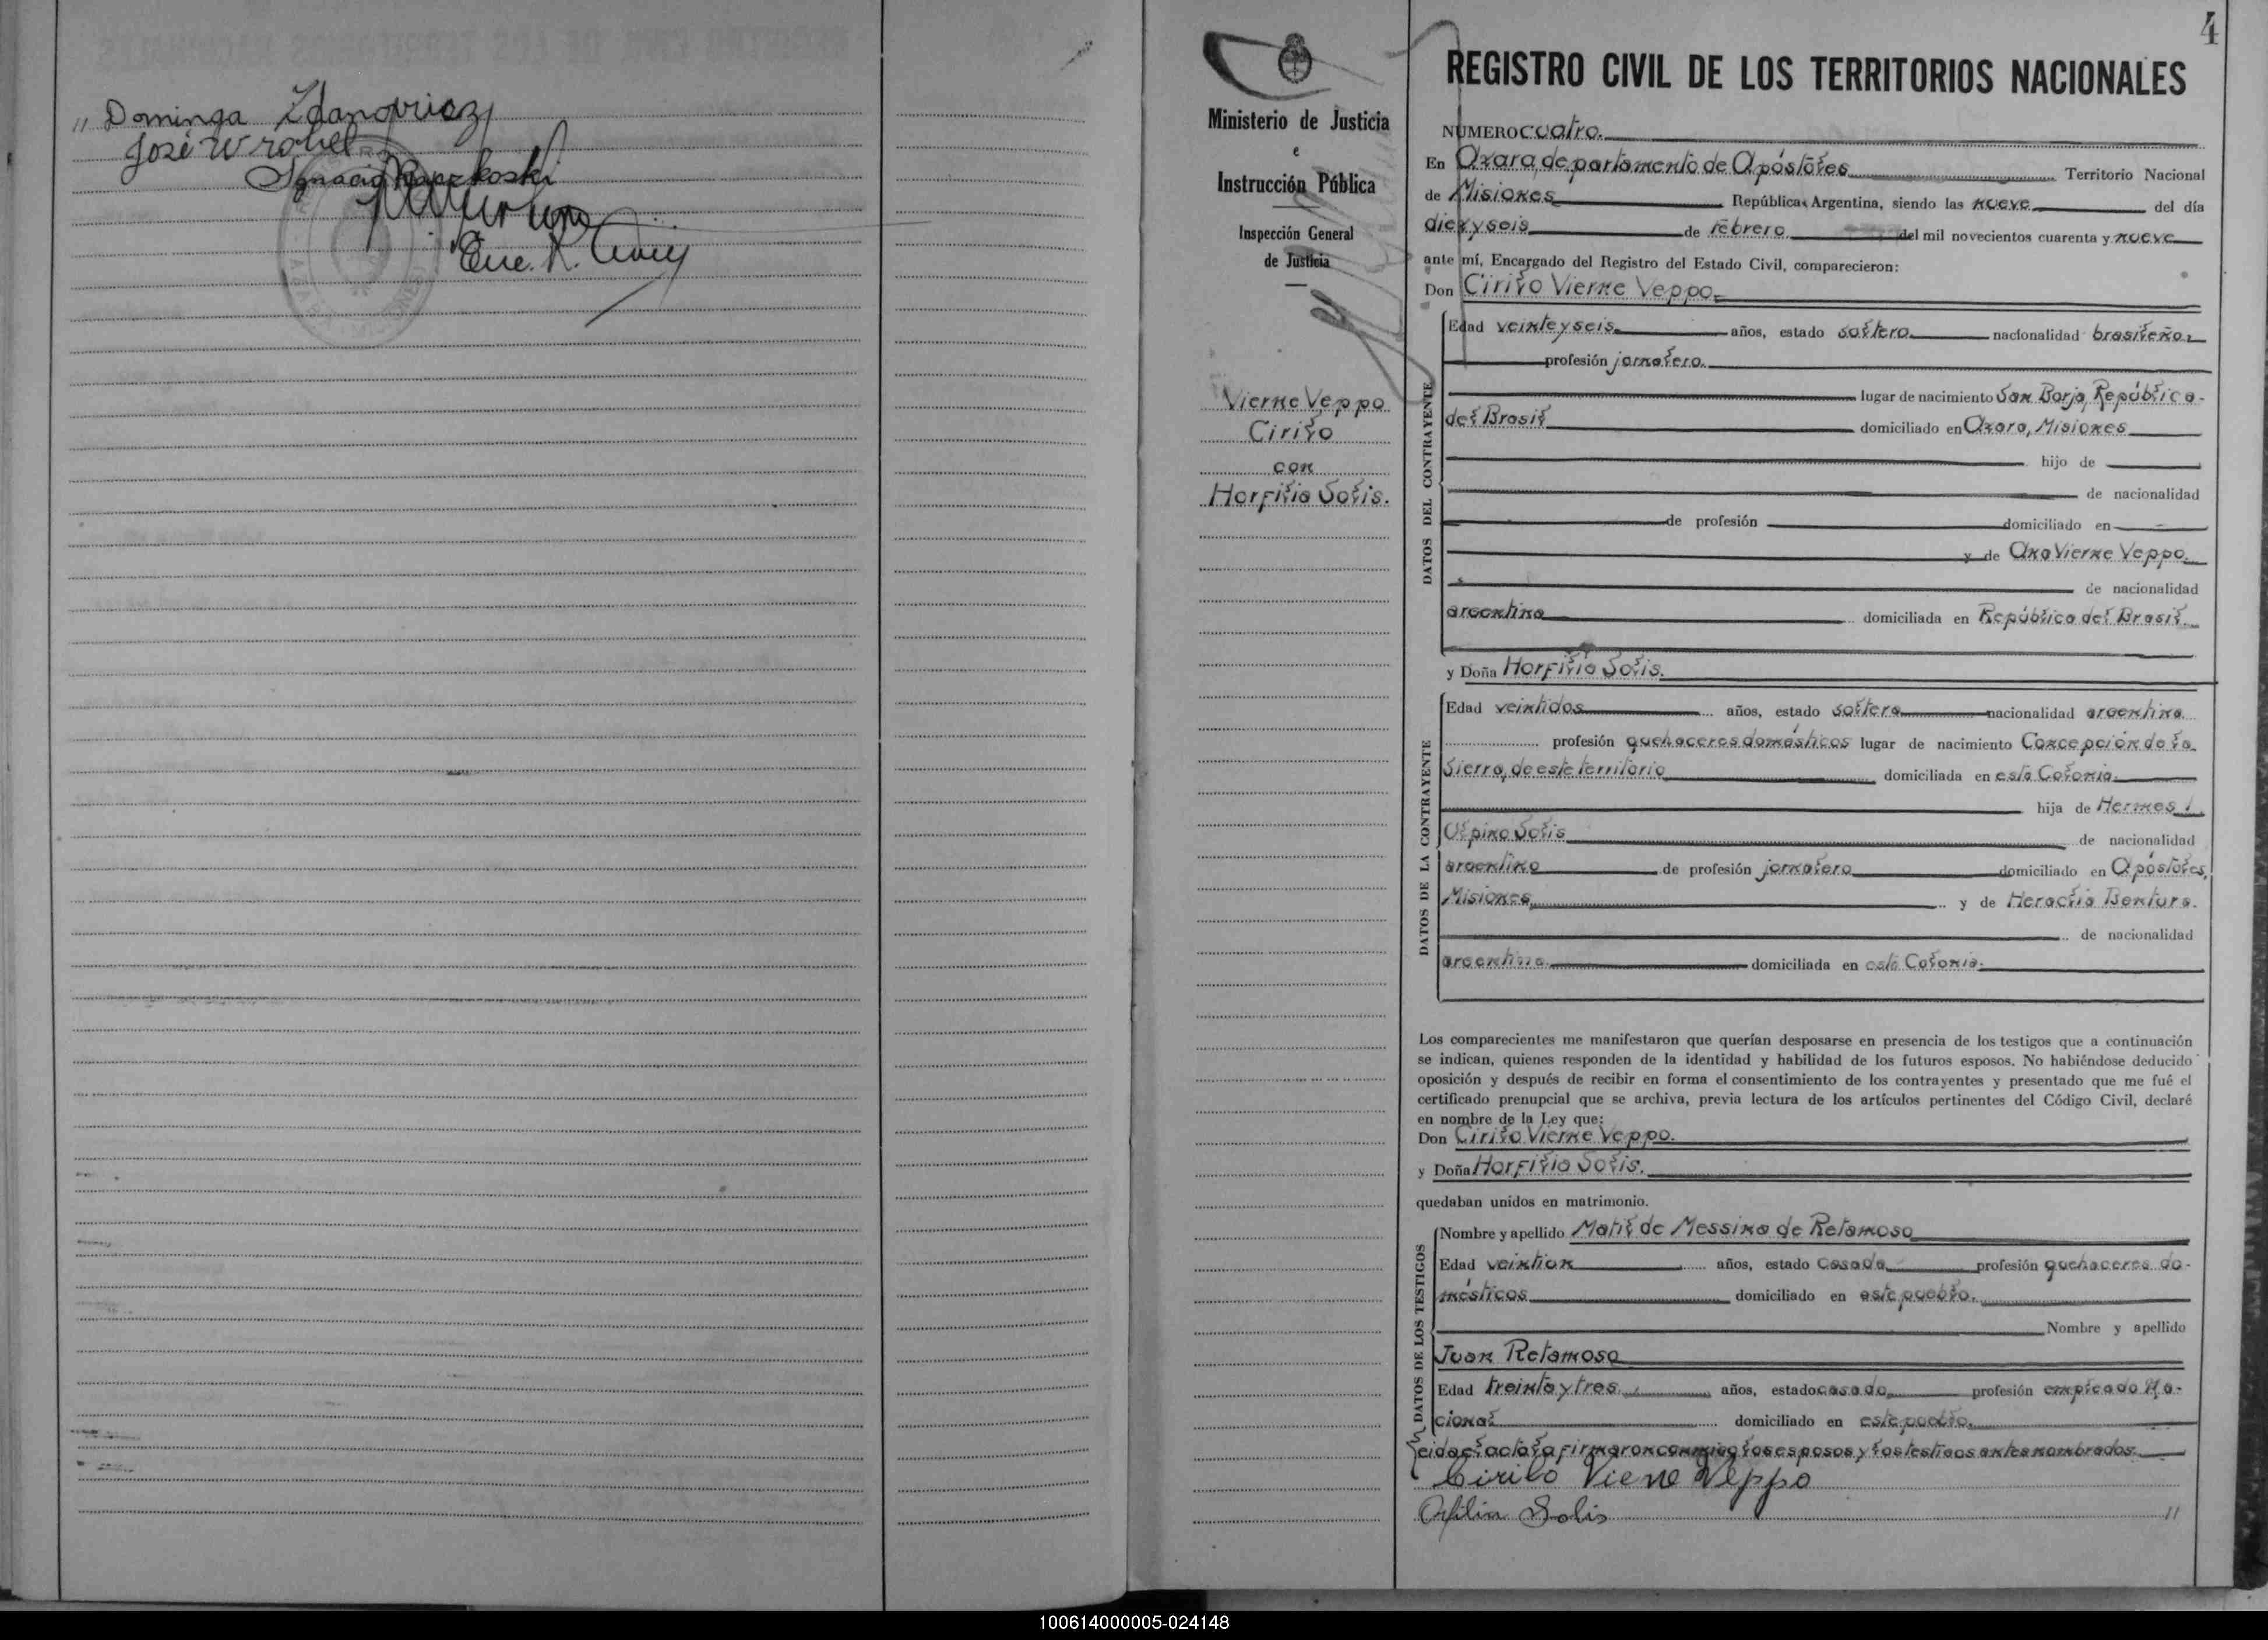 " Dominga Zdanovicz
José Wrobel
Ignacio Kaczkoski
4
Ministerio de Justicia
e
Instrucción Pública
Inspección General
de Justicia
Vierne Veppo
Cirilo
con
Horfilia Solis.
REGISTRO CIVIL DE LOS TERRITORIOS NACIONALES
NÚMERO cuatro.
En Azara, departamento de Apóstoles Territorio Nacional
de Misiones República Argentina, siendo las nueve del día
diez y seis de febrero del mil novecientos cuarenta y nueve
ante mí, Encargado del Registro del Estado Civil, comparecieron:
Don Cirilo Vierne Veppo
DATOS DEL CONTRAYENTE
Edad veinte y seis años, estado soltero nacionalidad brasileño
profesión jornalero.
lugar de nacimiento San Borja, República
del Brasil domiciliado en Azara, Misiones
hijo de
de nacionalidad
de profesión domiciliado en
y de Ana Vierne Veppo.
de nacionalidad
argentina domiciliada en República del Brasil.
y Doña Horfilia Solis.
DATOS DE LA CONTRAYENTE
Edad veintidos años, estado soltera nacionalidad argentina
profesión quehaceres domésticos lugar de nacimiento Concepción de la
Sierra, de este territorio domiciliada en esta Colonia.
hija de Hermes
Ulpino Solis de nacionalidad
argentino de profesión jornalero domiciliado en Apóstoles,
Misiones y de Heraclia Bentura.
de nacionalidad
argentina domiciliada en esta Colonia.
Los comparecientes me manifestaron que querían desposarse en presencia de los testigos que a continuación
se indican, quienes responden de la identidad y habilidad de los futuros esposos. No habiéndose deducido
oposición y después de recibir en forma el consentimiento de los contrayentes y presentado que me fué el
certificado prenupcial que se archiva, previa lectura de los artículos pertinentes del Código Civil, declaré
en nombre de la Ley que:
Don Cirilo Vierne Veppo.
y Doña Horfilia Solis.
quedaban unidos en matrimonio.
DATOS DE LOS TESTIGOS
Nombre y apellido Matilde Messina de Retamoso
Edad veintiun años, estado casada profesión quehaceres do-
mésticos domiciliado en este pueblo.
Nombre y apellido
Juan Retamoso
Edad treinta y tres años, estado casado profesión empleado Na-
cional domiciliado en este pueblo.
Leida el acta la firmaron conmigo los esposos y los testigos antes nombrados.
Cirilo Viene Veppo
Orfilia Solis "
100614000005-024148